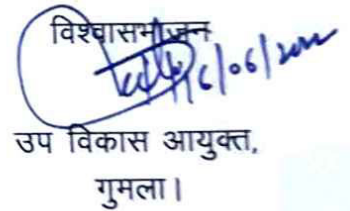 विश्वासभाजन
16/06/2022
उप विकास आयुक्त,
गुमला।